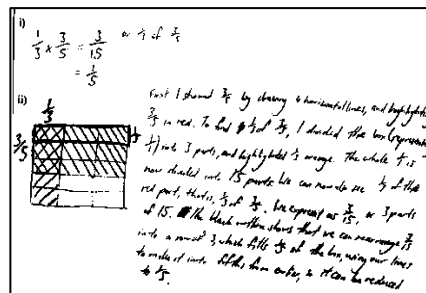 i)
1/3 × 3/5 = 3/15 or 1/3 of 3/5
= 1/5
ii)
1/3
3/5
First I showed 3/5 by drawing 4 horizontal lines, and highlighted
3/5 in red. To find 1/3 of 3/5, I divided the box (represents
1) into 3 parts, and highlighted 1/3 orange. The whole is
now divided into 15 parts. We can now also see 1/3 of the
red part, that is, 1/3 of 3/5. We express as 3/15, or 3 parts
of 15. The black outline shows that we can rearrange 3/15
into a row of 3, which fills 1/5 of the box, using our lines
to make it into fifths from earlier, so it can be reduced
to 1/5.